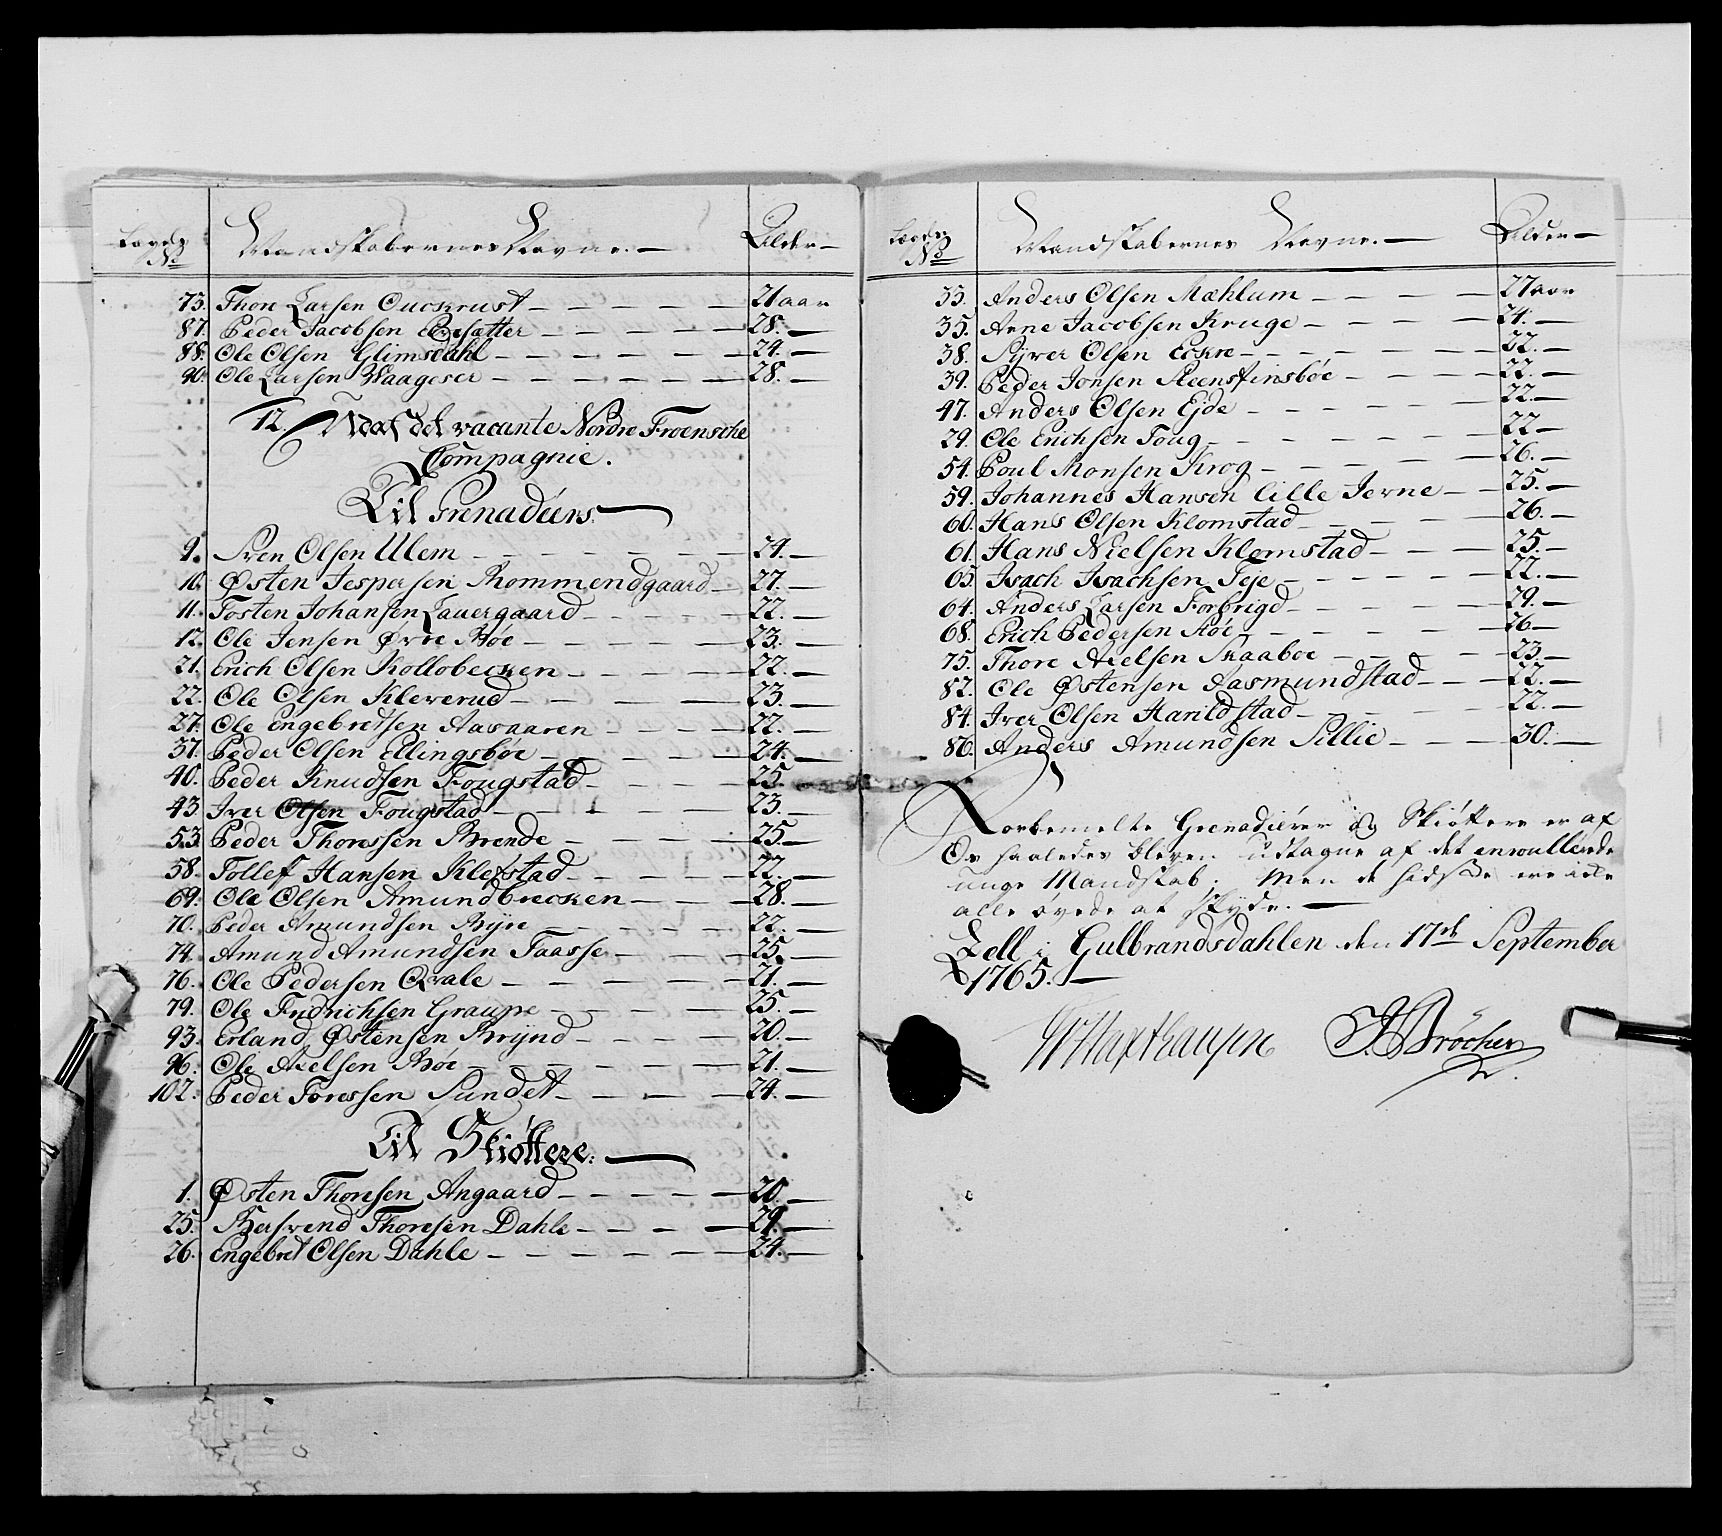 Lægds No Mandskabernes Navne. Alder
73. Thore Larsen Ouckrust 21 aar
87. Peder Jacobsen 28.
88. Ole Olsen Glimsdahl 24.
90. Ole Larsen Waageser 28.
12. Af det vacante Nordre Froensche
Compagnie.
Til Grenadeers.
9. Sven Olsen Ulem 24.
10. Østen Jespersen Rommendgaard 27.
11. Tosten Johansen Lauergaard 22.
12. Ole Jensen Øvre Boe 23.
21. Erich Olsen Kollobecken 22.
22. Ole Olsen Kleverud 23.
27. Ole Engebretsen Aavaaren 22.
37. Peder Olsen Ellingsbøe 24.
40. Peder Knudsen Fougstad 25.
43. Iver Olsen Fougstad 23.
53. Peder Thoressen Brende 25.
58. Tollef Hansen Klefstad 22.
69. Ole Olsen Amundbrecken 28.
70. Peder Amundsen Byre 22.
74. Amund Amundsen Taasse 25.
76. Ole Pedersen Qvale 21.
79. Ole Fridrichsen Graupe 25.
93. Erland Østensen Brÿnd 20.
96. Ole Axelsen Boe 21.
102. Peder Toressen Sundet 24.
Til Skiøttere.
1. Østen Thoresen Angaard 20.
25. Bersvend Thoresen Dahle 29.
26. Engebret Olsen Dahle 24.
Lægds No Mandskabernes Navne. Alder
33. Anders Olsen Mæhlum 27 aar
35. Arne Jacobsen Kruge 21.
38. Syver Olsen Eckre 22.
39. Peder Jonsen Steenstinsbøe 22.
47. Anders Olsen Ejde 22.
29. Ole Erichsen Toug 22
54. Poul Monsen Krog 26.
59. Johannes Hansen lille Jerne 25.
60. Hans Olsen Klomstad 26.
61. Hans Nielsen Klomstad 25.
65. Isach Isachsen Teje 22.
64. Anders Larsen Forbrigd 29.
68. Erich Pedersen Støe 26
75. Thore Axelsen Skaaboe 23.
82. Ole Østensen Aasmundstad 22.
84. Iver Olsen Harildstad 22.
86. Anders Amundsen Sillie 30.
Forbemelte Grenadierer og Skiøttere er af
Os saaledes bleven udtagne af det enroullerede
unge Mandskab; Men de sidste ere icke
alle øvede at skyde.
Zell i Gulbrandsdahlen den 17de September
1765.
Haxthausen J. Bröcher